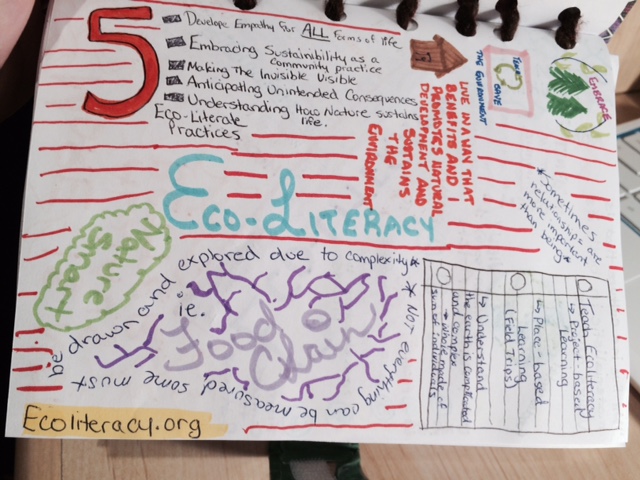 5
Develope Empathy For ALL Forms of life
Embracing Sustainability as a
community practice
Making The Invisible Visible
Anticipating Unintended Consequences
Understanding How Nature sustains
life.
Eco-Literate
Practices
LIVE IN A WAY THAT
BENEFITS AND I
PROMOTES NATURAL
DEVELOPMENT AND
SUSTAINS
THE
ENVIRONMENT
SAVE
THE ENVIRONMENT
EMBRACE
*Sometimes
relationships are
more important
than being*
ECO-LITERACY
Nature
Smart
*Not everything can be measured some must be drawn and explored due to complexity*
ie.
Food
Chain
Teach EcoLiteracy
↳ Project-based
Learning
↳ Place-based
Learning
(Field Trips)
↳ Understand
the earth is complicated
and complex
→ whole made of
individuals
Ecoliteracy.org